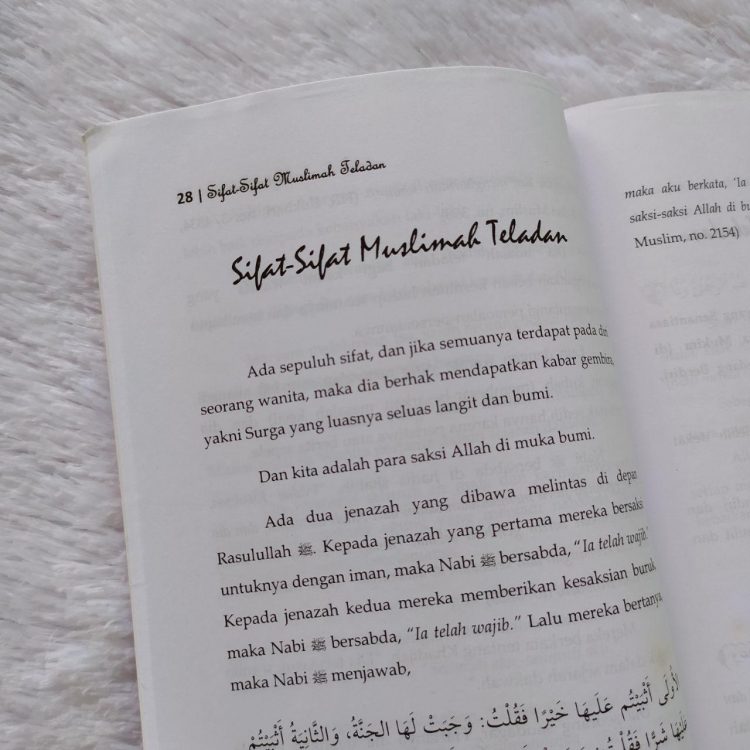 28 | Sifat-Sifat Muslimah Teladan
Sifat-Sifat Muslimah Teladan
Ada sepuluh sifat, dan jika semuanya terdapat pada diri
seorang wanita, maka dia berhak mendapatkan kabar gembira,
yakni Surga yang luasnya seluas langit dan bumi.
Dan kita adalah para saksi Allah di muka bumi.
Ada dua jenazah yang dibawa melintas di depan
Rasulullah ﷺ. Kepada jenazah yang pertama mereka bersaksi
untuknya dengan iman, maka Nabi ﷺ bersabda, “Ia telah wajib.”
Kepada jenazah kedua mereka memberikan kesaksian buruk,
maka Nabi ﷺ bersabda, “Ia telah wajib.” Lalu mereka bertanya
maka Nabi ﷺ menjawab,
الْأُولَى أَثْنَيْتُمْ عَلَيْهَا خَيْرًا فَقُلْتُ: وَجَبَتْ لَهَا الْجَنَّةُ، وَالثَّانِيَةُ أَثْنَيْتُمْ
عَلَيْهَا شَرًّا فَقُلْتُ
maka aku berkata, ‘Ia
saksi-saksi Allah di bu
Muslim, no. 2154)